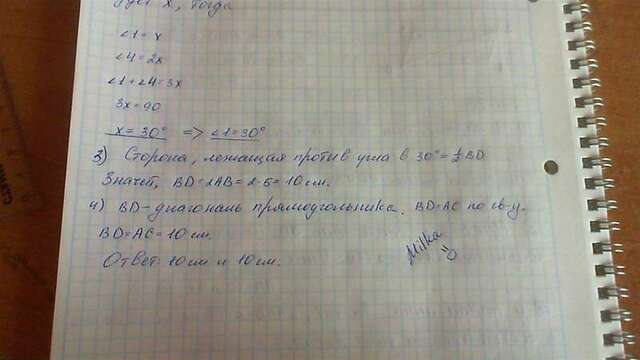 x, тогда
∠1 = x
∠4 = 2x
∠1 + ∠4 = 3x
3x = 90
x = 30° => ∠1 = 30°
3) Сторона, лежащая против угла в 30° = 1/2 BD.
Значит, BD = 2AB = 2·5 = 10 см.
4) BD - диагональ прямоугольника. BD = AC по св-у.
BD = AC = 10 см.
Ответ: 10 см и 10 см.
Milka